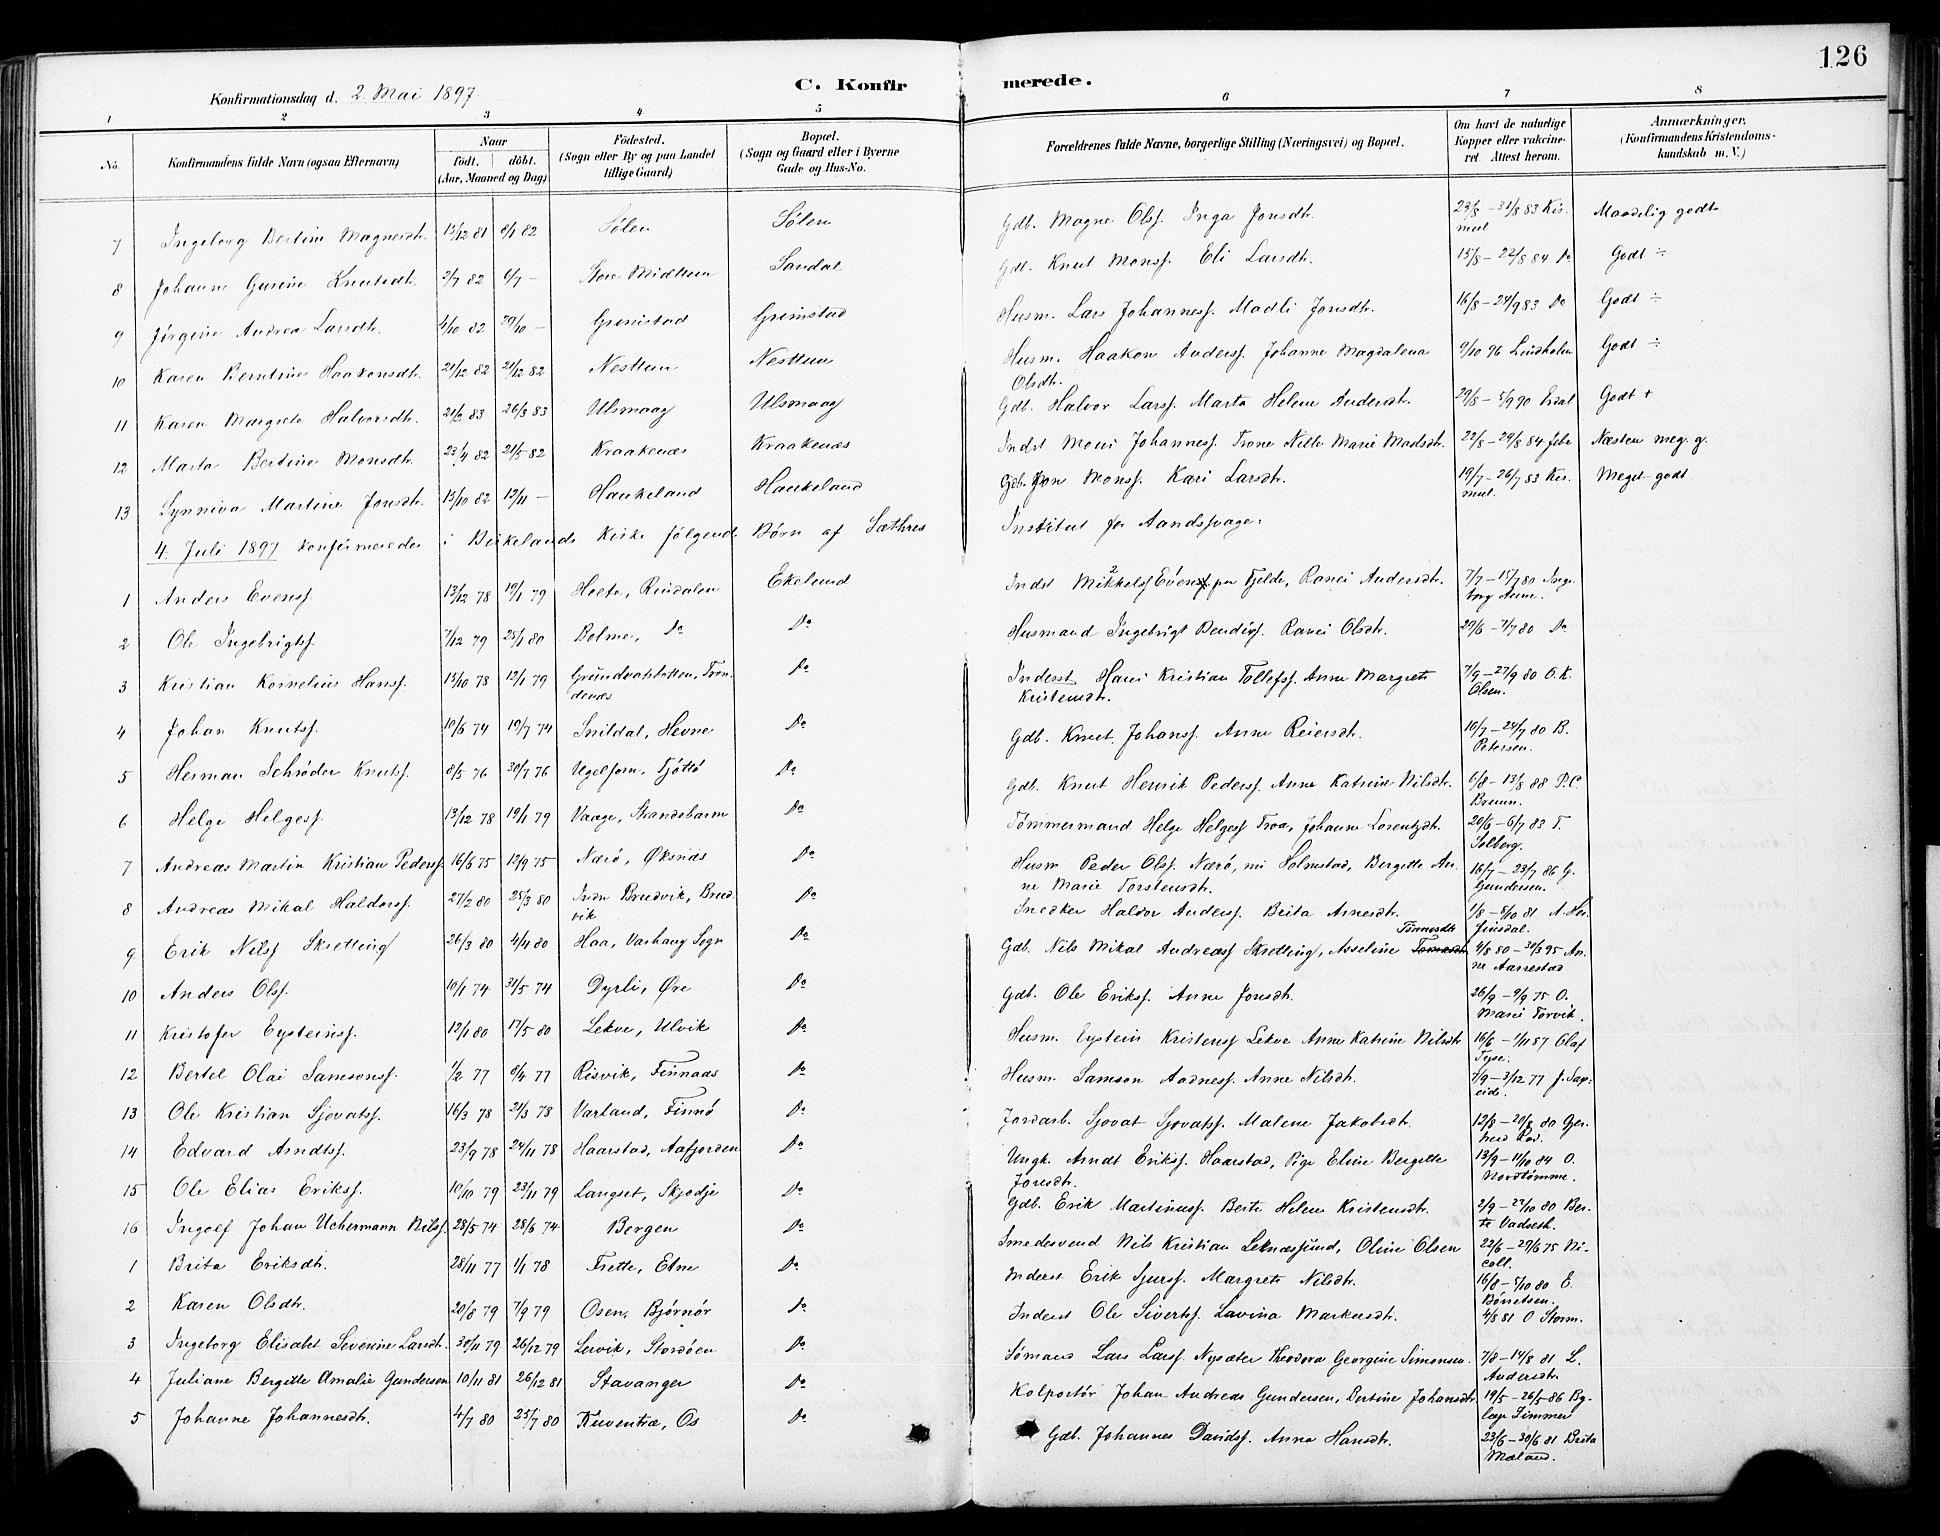 126
C. Konfirmerede.
Konfirmationsdag d. 2 Mai 1897
1 2 3 4 5 6 7 8
No. Konfirmandens fulde Navn (ogsaa Efternavn) Naar födt. döbt. (Aar, Maaned og Dag) Födested. (Sogn eller By og paa Landet tillige Gaard) Bopæl. (Sogn og Gaard eller i Byerne Gade og Hus-No. Forældrenes fulde Navne, borgerlige Stilling (Næringsvei) og Bopæl. Om havt de naturlige Kopper eller vakcineret. Attest herom. Anmærkninger. (Konfirmandens Kristendomskundskab m. V.)
7 Ingeborg Bertine Magnesdtr. 15/12 81 8/1 82 Sølen Sølen Gdb. Magne Olsf. Inga Jonsdtr. 23/8 – 31/8 83 Kismul Maadelig godt
8 Johanne Gurine Knutsdtr. 2/7 82 9/7 – Store Midttun Sandal Gdb. Knut Monsf. Eli Larsdtr. 15/8 – 22/8 84 Do Godt ÷
9 Jørgine Andrea Larsdtr. 4/10 82 29/10 – Grimstad Grimstad Husm. Lars Johannesf. Madli Jonsdtr. 16/8 – 24/9 83 Do Godt ÷
10 Karen Berntine Haakonsdtr. 21/12 82 21/12 82 Nesttun Nesttun Husm. Haakon Andersf. Johanne Magdalena Olsdtr. 9/10 96 Lindholm Godt ÷
11 Karen Margrete Halvorsdtr. 21/2 83 26/3 83 Ulsmaag Ulsmaag Gdb. Halvor Larsf. Marta Helene Andersdtr. 29/8 – 5/9 90 Godt +
12 Marta Bertine Monsdtr. 23/4 82 21/5 82 Kraakenæs Kraakenæs Indst Mons Johannesf. Trone Nille Marie Madsdtr. 22/8 – 29/8 84 Næsten meg. g.
13 Synniva Martine Jonsdtr. 13/10 82 12/11 – Haukeland Haukeland Gdb. Jon Monsf. Kari Larsdtr. 19/7 – 26/7 83 Kismul. Meget godt
4. Juli 1897 konfirmeredes i Birkelands Kirke følgende Børn af Sæthres Institut for Aandssvage:
1 Anders Evensf. 13/12 78 19/1 79 Holte, Rindalen Ekelund Indst Mikkelsf Evensf. paa Fjelde, Ranei Andersdtr. 7/7 – 15/7 80 Ingeborg Aune.
2 Ole Ingebrigtsf. 7/12 79 25/1 80 Bolme, Do Do Husmand Ingebrigt Bendixf. Ranei Olsdtr. 29/6 – 7/7 80 Do
3 Kristian Kornelius Hansf. 13/10 78 12/1 79 Trondenæs Do Inderst Hans Kristian Tollefsf. Anne Margrete Kristensdtr. 7/9 – 27/9 80 O. K. Olsen.
4 Johan Knutsf. 10/6 74 19/7 74 Snildal, Hevne Do Gdb. Knut Johansf. Anne Reiersdtr. 10/7 – 24/7 80 B. Petersen.
5 Herman Schrøder Knutsf. 8/5 76 30/7 76 Tjøttø Do Gdb. Knut Henrik Pedersf. Anne Katrine Nilsdtr. 6/8 – 13/8 88 P.C. Bruun.
6 Helge Helgesf. 13/12 78 19/1 79 Vaage, Strandebarm Do Tømmermand Helge Helgesf Troa, Johanne Lorentzdtr. 20/6 – 6/7 83 T. Solberg.
7 Andreas Martin Kristian Pedersf. 16/6 75 12/9 75 Nærø, Øksnæs Do Husm. Peder Olsf. Nærø, nu Holmstad, Bergitte Anne Marie Torstensdtr. 16/7 – 23/7 86 G. Gundersen.
8 Andreas Mikal Haldorsf. 27/2 80 28/3 80 Indre Bruvik, Bruvik Do Snedker Haldor Andersf. Brita Arnesdtr. 1/8 – 8/10 81 A. Herfindal.
9 Erik Nilsf Skretting 26/3 80 4/4 80 Haa, Varhaug Sogn Do Gdb. Nils Mikal Andreasf Skretting, Asseline Tønnesdtr 4/8 80 – 30/3 95 Anne Aarrestad
10 Anders Olsf. 10/1 74 31/5 74 Dyrli, Øre Do Gdb. Ole Eriksf. Anne Jonsdtr. 26/9 – 9/9 75 O. Marie Torvik.
11 Kristofer Eysteinsf. 12/1 80 17/5 80 Lekve, Ulvik Do Husm. Eystein Kristensf Lekve Anne Katrine Nilsdtr 16/6 – 1/11 87 Olaf Tyse.
12 Bertel Olai Samsonsf. 1/2 77 8/4 77 Risvik, Finnaas Do Husm. Samson Aadnesf. Anne Nilsdtr. 7/9 – 3/12 77 J. Sapeide.
13 Ole Kristian Sjovatsf. 16/3 78 21/3 78 Varland, Finnø Do Jordarb. Sjovat Sjovatsf. Malene Jakobsdtr. 12/8 – 20/8 80
14 Edvard Arndtsf. 23/9 78 24/11 78 Haarstad, Aafjorden Do Ungk. Arndt Eriksf. Haarstad, Pige Eline Bergitte Jonsdtr. 13/9 – 11/10 84 O. Nordtømme.
15 Ole Elias Eriksf. 10/10 79 23/11 79 Langset, Skjodje Do Gdb. Erik Martinusf. Berte Helene Kristensdtr. 2/9 – 27/10 80 Berte Vadseth.
16 Ingolf Johan Uchermann Nilsf. 28/5 74 28/6 74 Bergen Do Smedesvend Nils Kristian Leknæssund, Oline Olsen 22/6 – 29/6 75 Nicoll.
1 Brita Eriksdtr. 28/11 77 1/1 78 Frette, Etne Do Inderst Erik Sjursf. Margrete Nilsdtr. 16/8 – 5/10 80 E. Børretsen.
2 Karen Olsdtr. 20/8 79 7/9 79 Osen, Bjørnør Do Inderst Ole Sivertsf. Lavina Markusdtr. 4/8 81 O Storm.
3 Ingeborg Elisabet Severine Larsdtr. 30/11 79 26/12 79 Lervik, Stordøen Do Sømand Lars Larsf. Nysæter Theodora Georgine Simonsen. 7/8 – 14/8 81 L. Andersdtr.
4 Juliane Bergitte Amalie Gundersen 10/11 81 26/12 81 Stavanger Do Kolportør Johan Andreas Gundersen, Bertine Johansdtr. 19/5 – 26/5 86 Bylæge Zimmer
5 Johanne Johannesdtr. 4/7 80 25/7 80 Tveventræ, Os Do Gdb. Johannes Davidsf. Anna Hansdtr. 23/6 – 30/6 81 Brita Mæland.